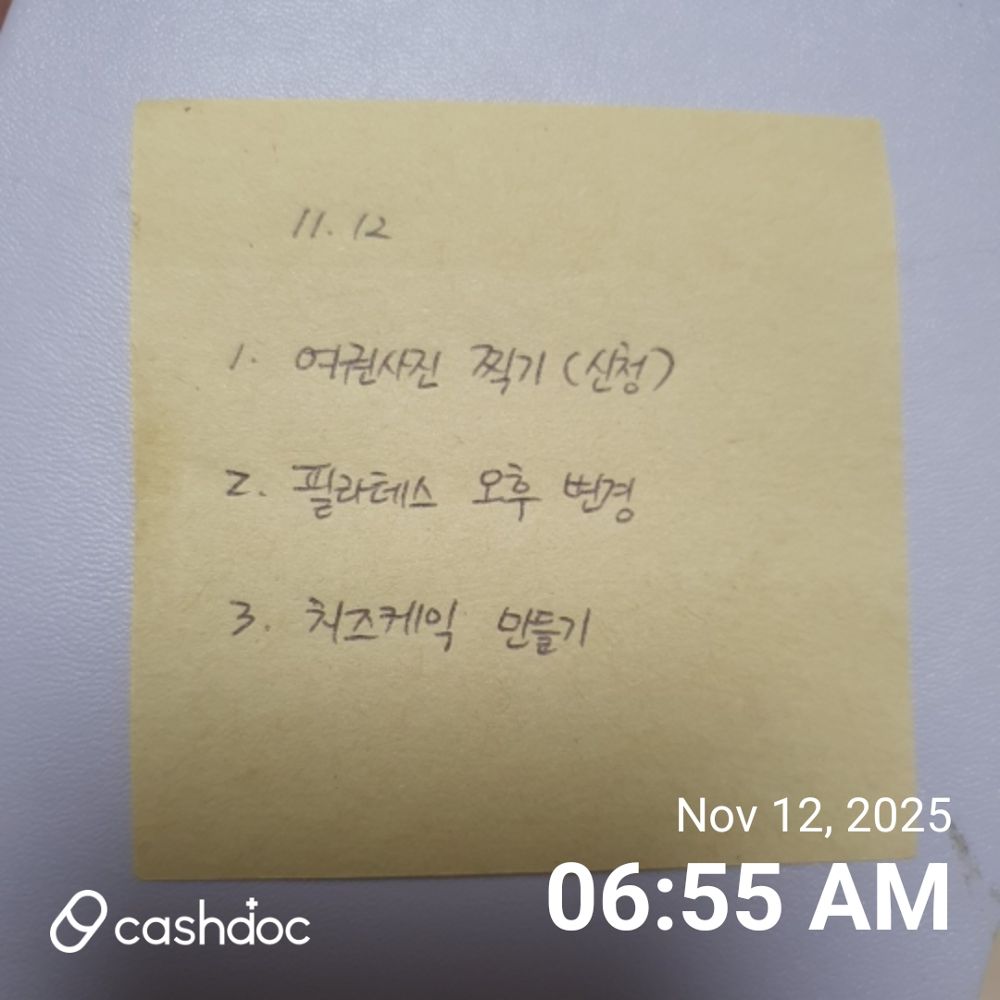 11. 12
1. 여권사진 찍기 (신청)
2. 필라테스 오후 변경
3. 치즈케익 만들기
Nov 12, 2025
06:55 AM
cashdoc